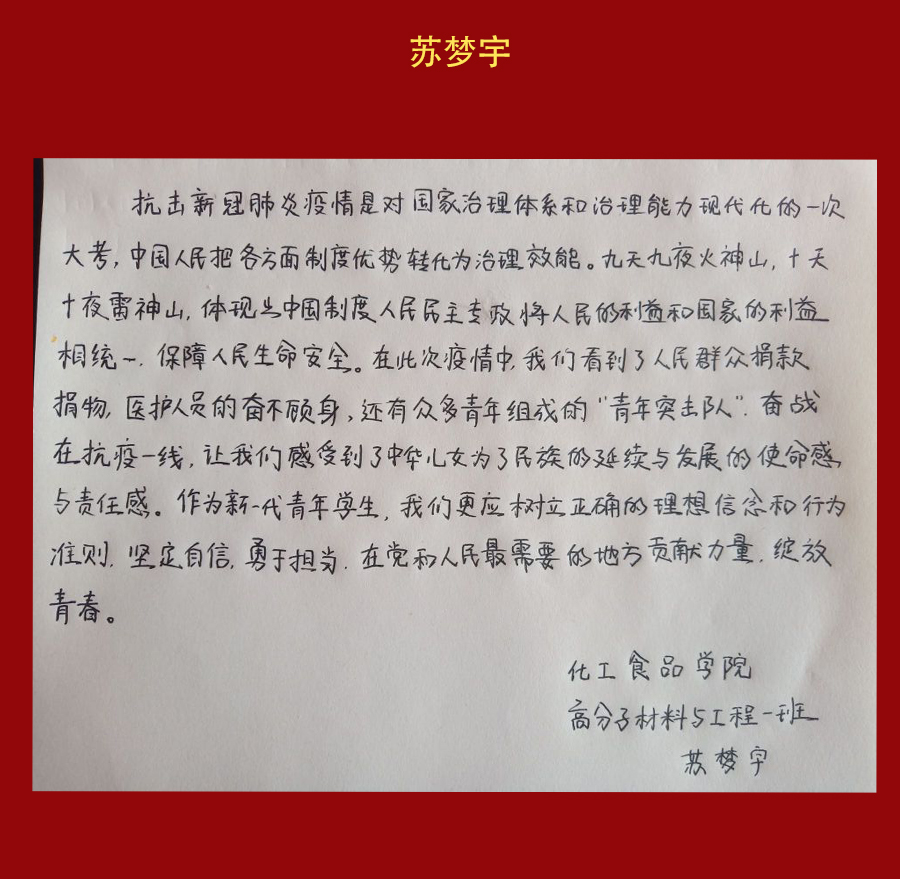 苏梦宇
抗击新冠肺炎疫情是对国家治理体系和治理能力现代化的一次
大考,中国人民把各方面制度优势转化为治理效能。九天九夜火神山,十天
十夜雷神山,体现出中国制度人民民主专政将人民的利益和国家的利益
相统一,保障人民生命安全。在此次疫情中,我们看到了人民群众捐款
捐物,医护人员的奋不顾身,还有众多青年组成的“青年突击队”,奋战
在抗疫一线,让我们感受到了中华儿女为了民族的延续与发展的使命感
与责任感。作为新一代青年学生,我们更应树立正确的理想信念和行为
准则,坚定自信,勇于担当,在党和人民最需要的地方贡献力量,绽放
青春。
化工食品学院
高分子材料与工程一班
苏梦宇